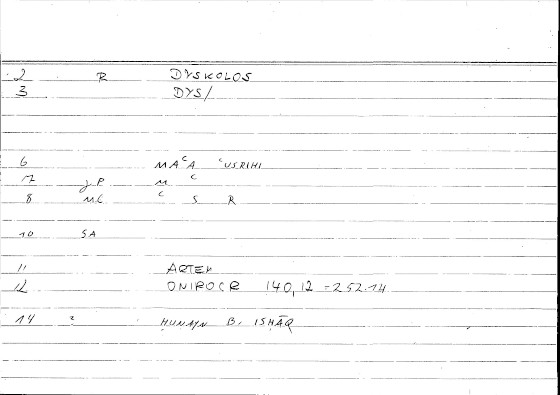 2 R DYSKOLOS
3 DYS/
6 MAᶜA ᶜUSRIHI
7 JP M ᶜ
8 MC ᶜ S R
10 SA
11 ARTEM
12 ONIROCR 140,12 = 252.14
14 2 ḤUNAYN B. ISḤĀQ